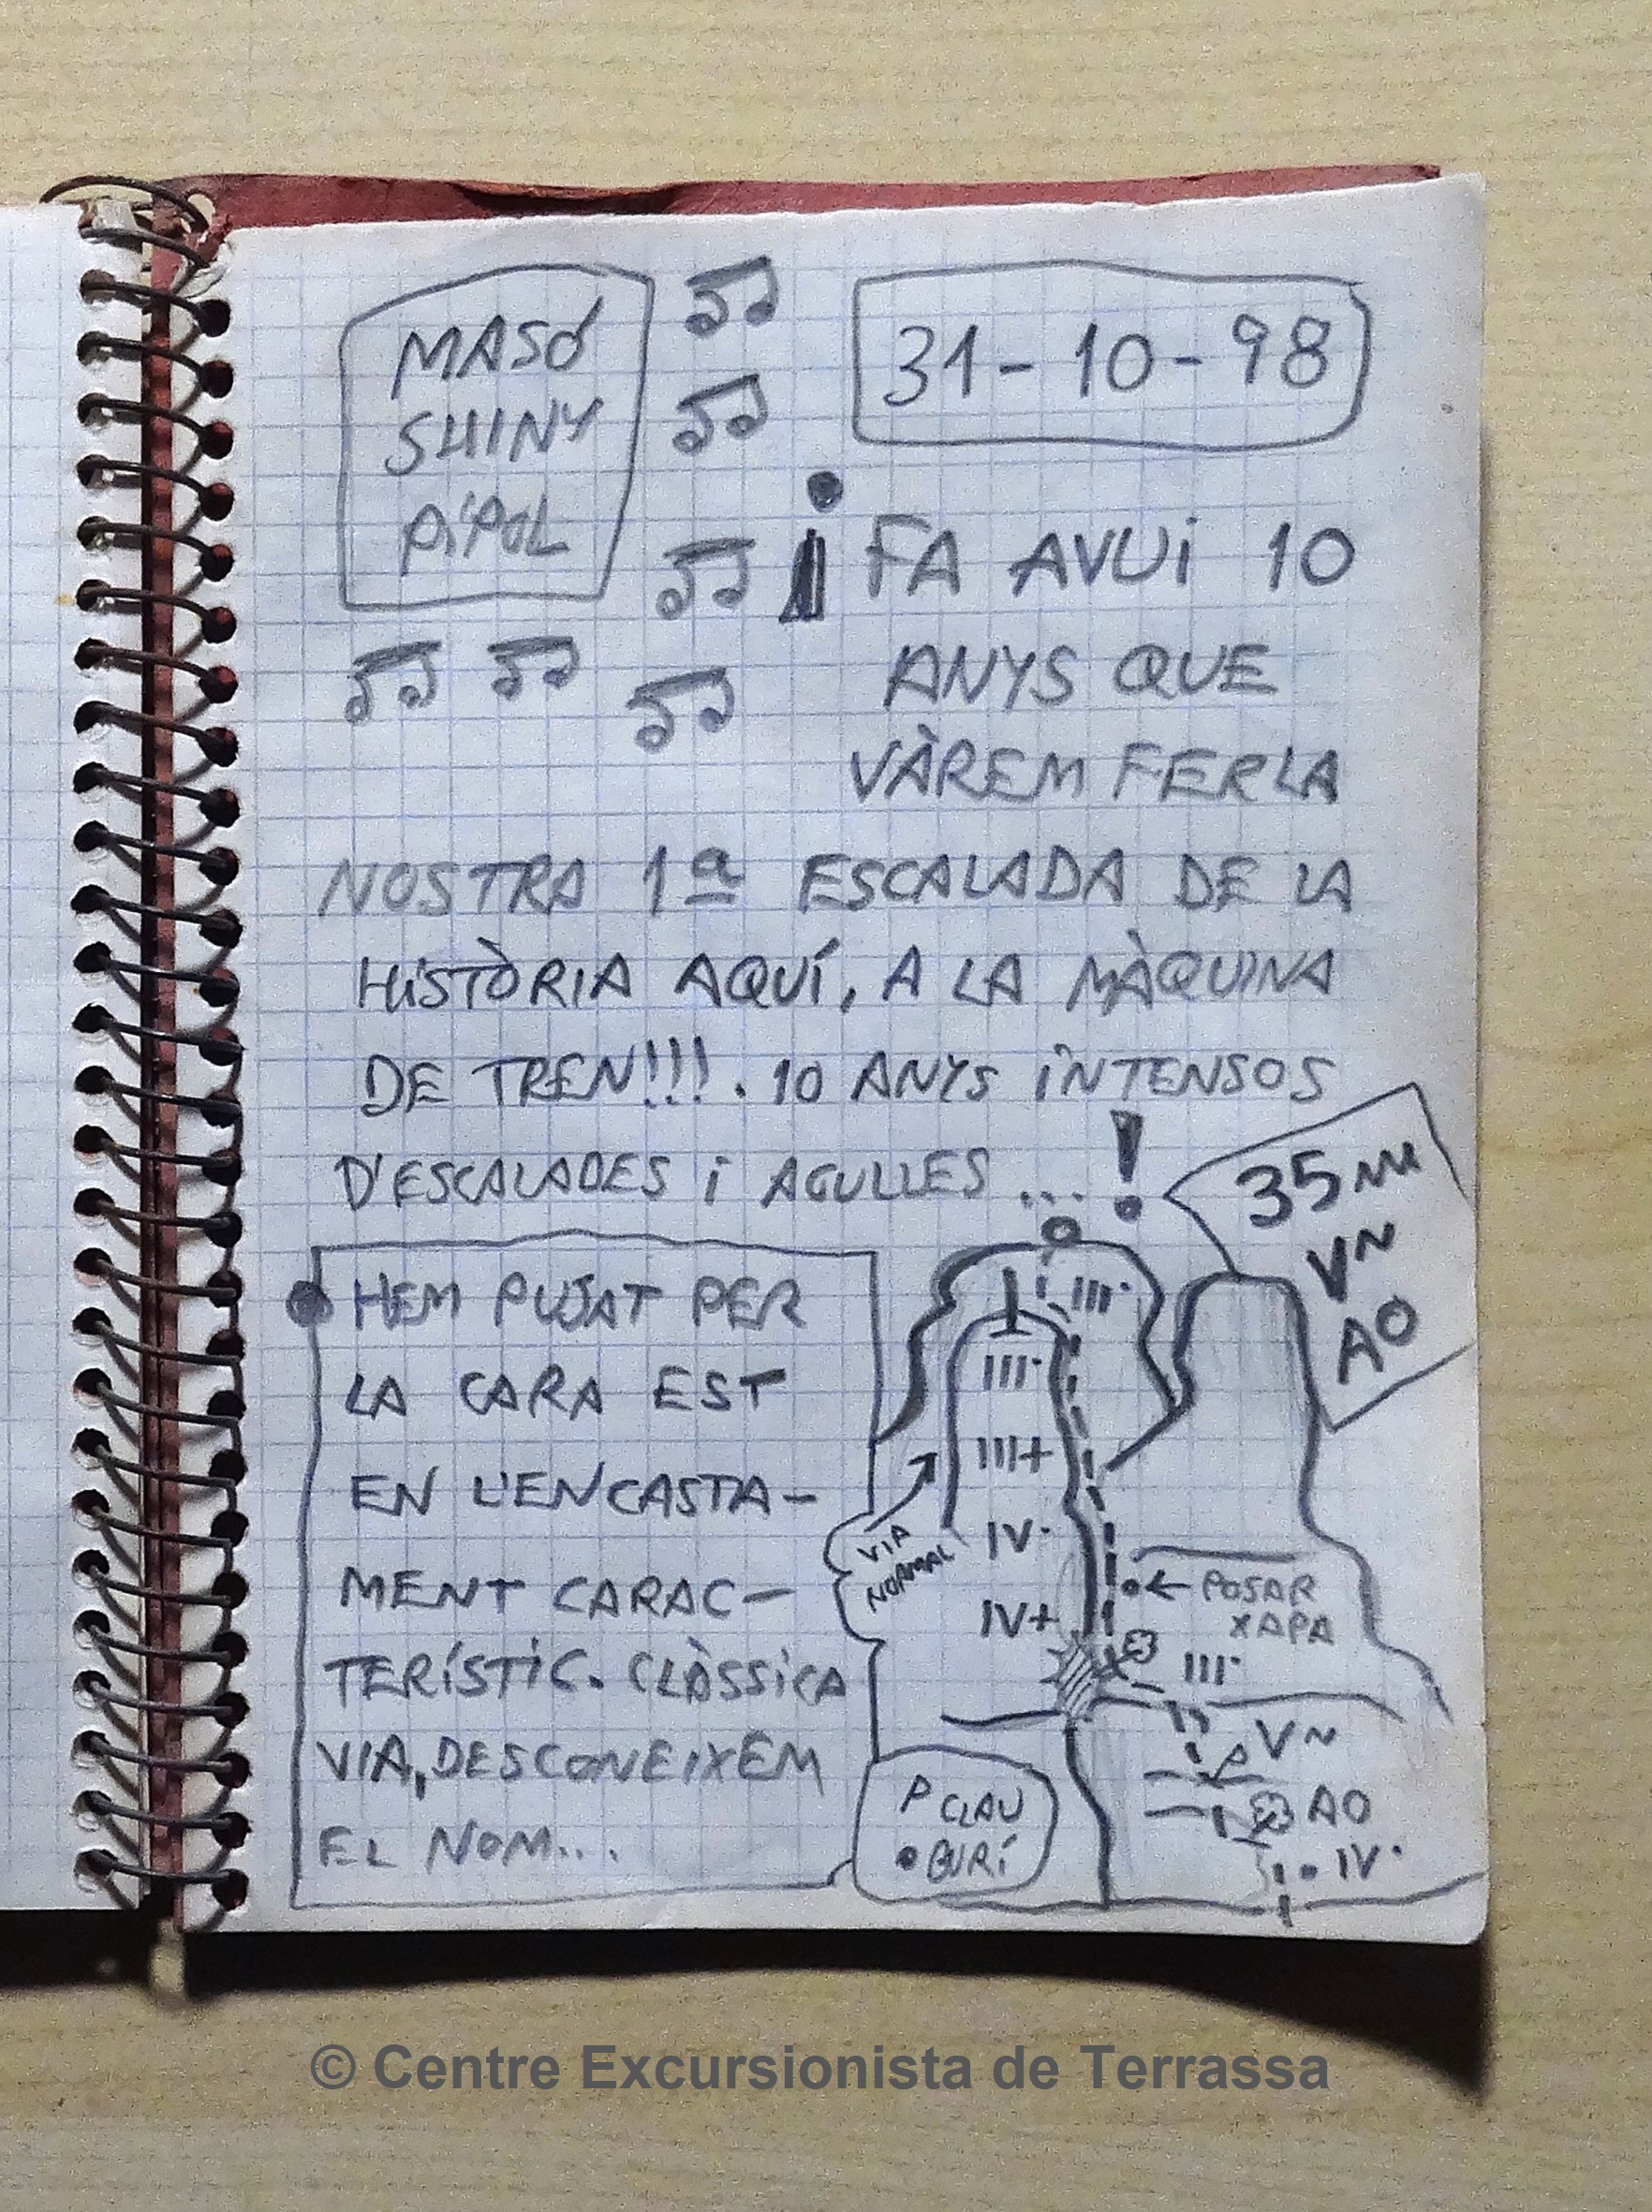 MASÓ
SHINY
PÍPOL
31-10-98
¡FA AVUI 10
ANYS QUE
VÀREM FER LA
NOSTRA 1ª ESCALADA DE LA
HISTÒRIA AQUÍ, A LA MÀQUINA
DE TREN!!!. 10 ANYS INTENSOS
D'ESCALADES I AGULLES ...!
HEM PUJAT PER
LA CARA EST
EN L'ENCASTA-
MENT CARAC-
TERÍSTIC. CLÀSSICA
VIA, DESCONEIXEM
EL NOM...
35m
Vn
AO
III·
III·
III+
IV·
VIA
NORMAL
IV+
POSAR
XAPA
III·
Vn
P
AO
IV·
P CLAU
• BURÍ
© Centre Excursionista de Terrassa